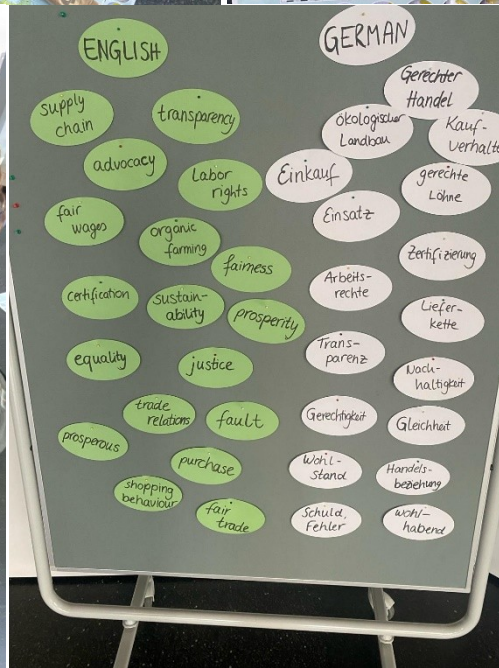 ENGLISH
supply
chain
transparency
advocacy
Labor
rights
fair
wages
organic
farming
fairness
certification
sustain-
ability
prosperity
equality
justice
trade
relations
fault
prosperous
purchase
shopping
behaviour
fair
trade
GERMAN
Gerechter
Handel
ökologischer
Landbau
Kauf-
verhalte
Einkauf
gerechte
Löhne
Einsatz
Zertifizierung
Arbeits-
rechte
Liefer-
kette
Trans-
parenz
Nach-
haltigkeit
Gerechtigkeit
Gleichheit
Wohl-
stand
Handels-
beziehung
Schuld,
Fehler
wohl-
habend